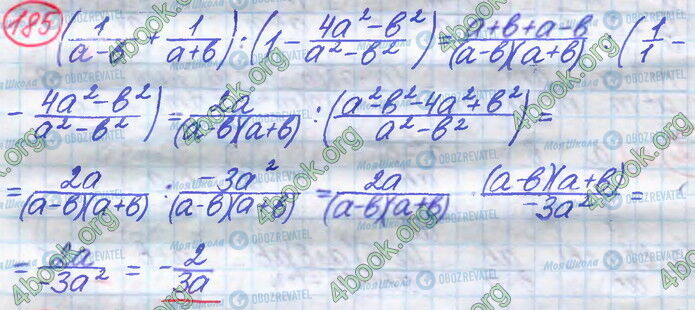 185 (1/(a-в) + 1/(a+в)) : (1 - (4a²-в²)/(a²-в²)) = (a+в+a-в)/((a-в)(a+в)) : (1/1 -
- (4a²-в²)/(a²-в²)) = 2a/((a-в)(a+в)) : ((a²-в²-4a²+в²)/(a²-в²)) =
= 2a/((a-в)(a+в)) : -3a²/((a-в)(a+в)) = 2a/((a-в)(a+в)) · ((a-в)(a+в))/(-3a²) =
= 2a/(-3a²) = - 2/(3a)
4book.org
Моя Школа
OBOZREVATEL